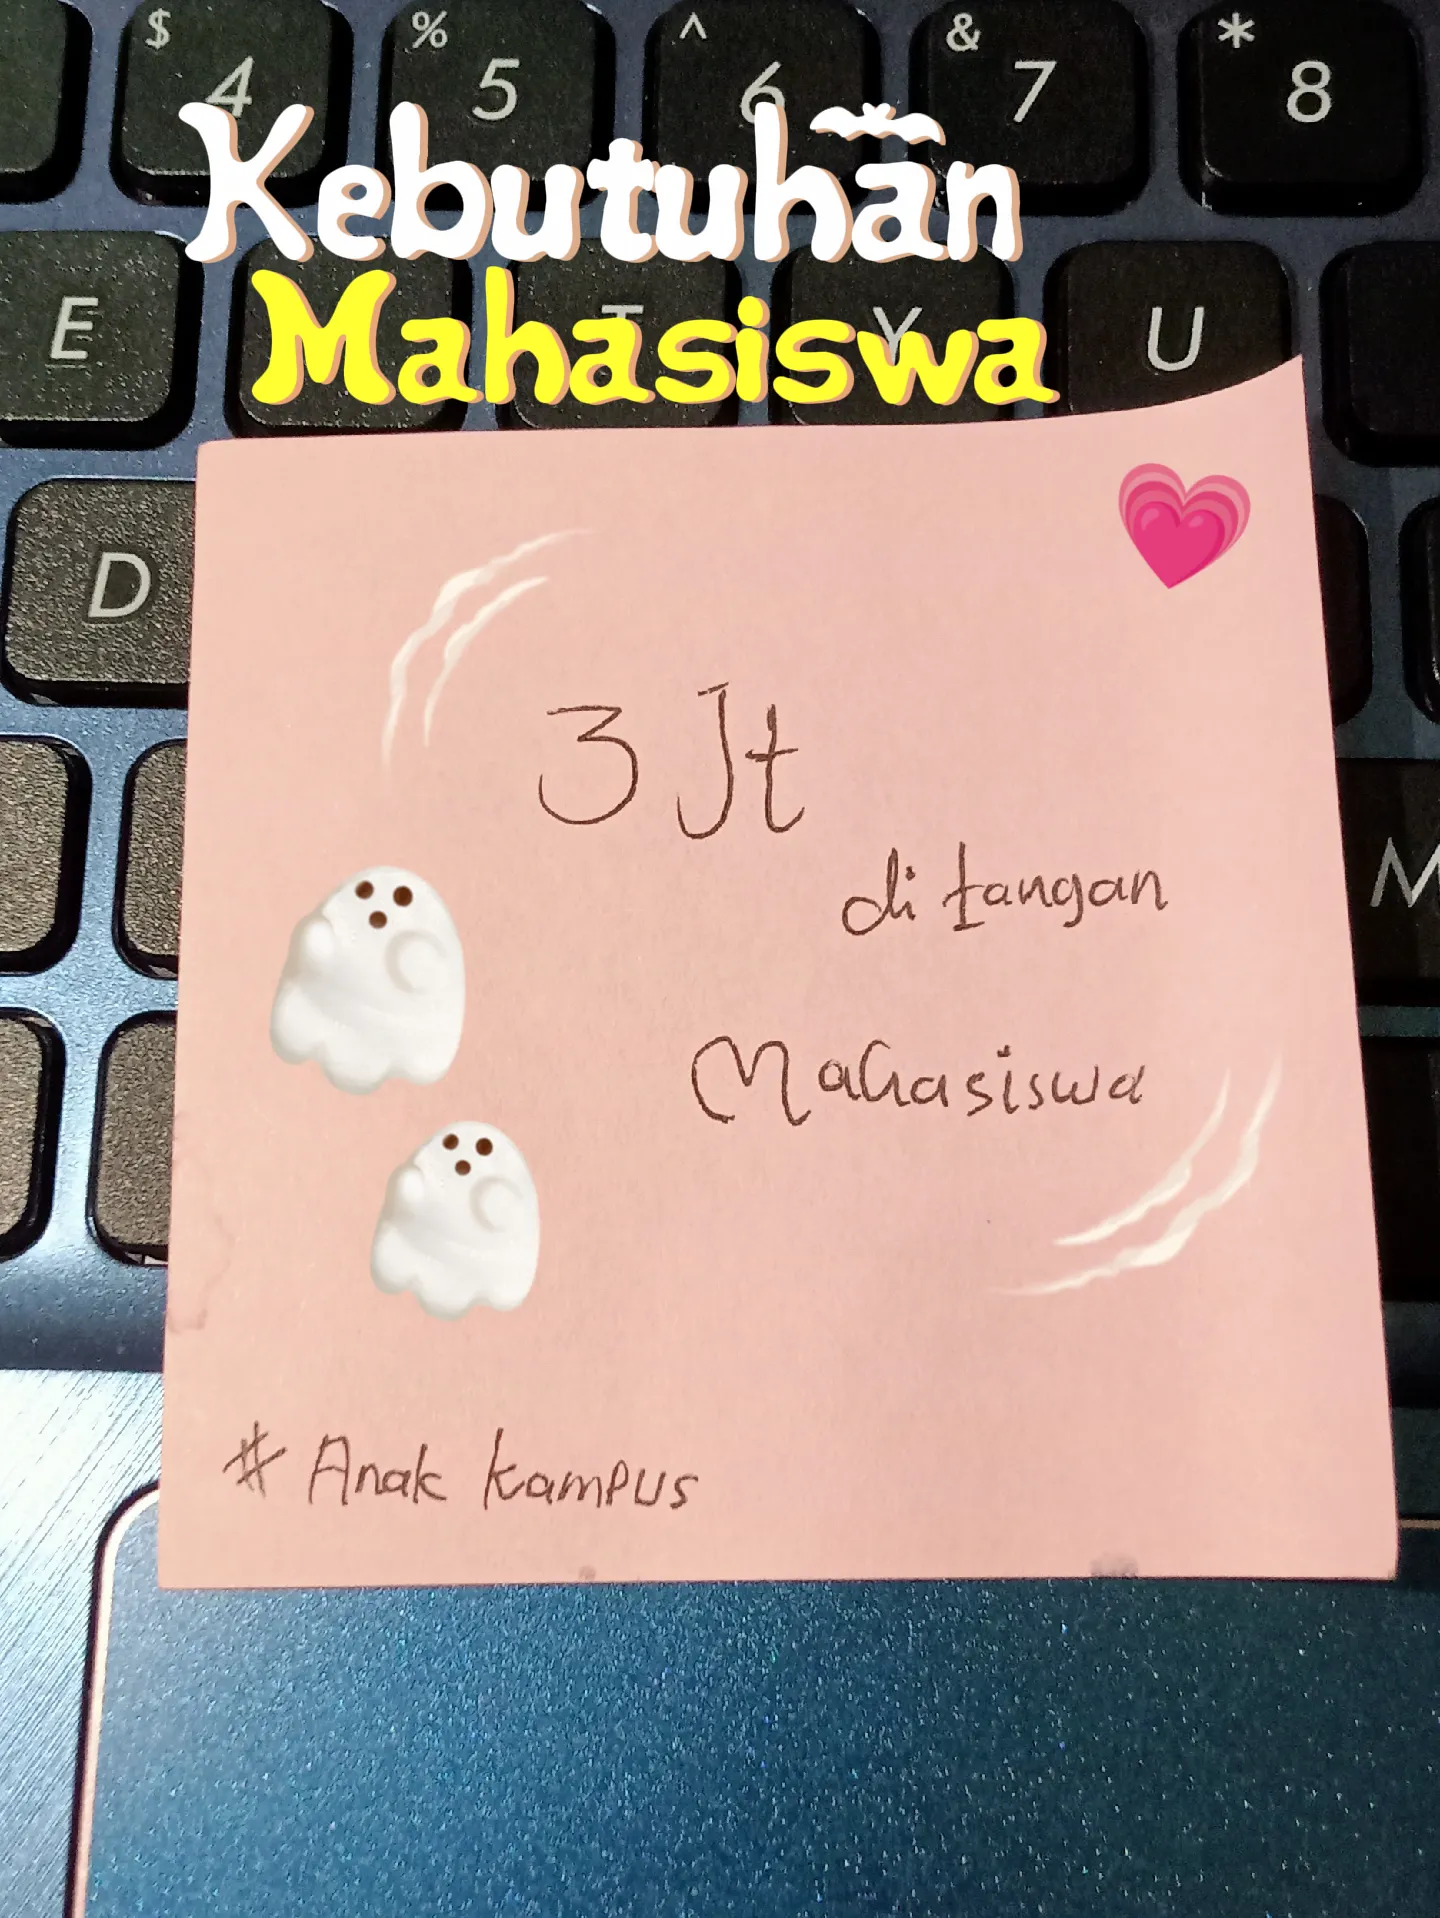 $ % ^ & *
4 5 6 7 8
Kebutuhan
E T Y U
Mahasiswa
D
3 Jt
di tangan
M
Mahasiswa
# Anak kampus